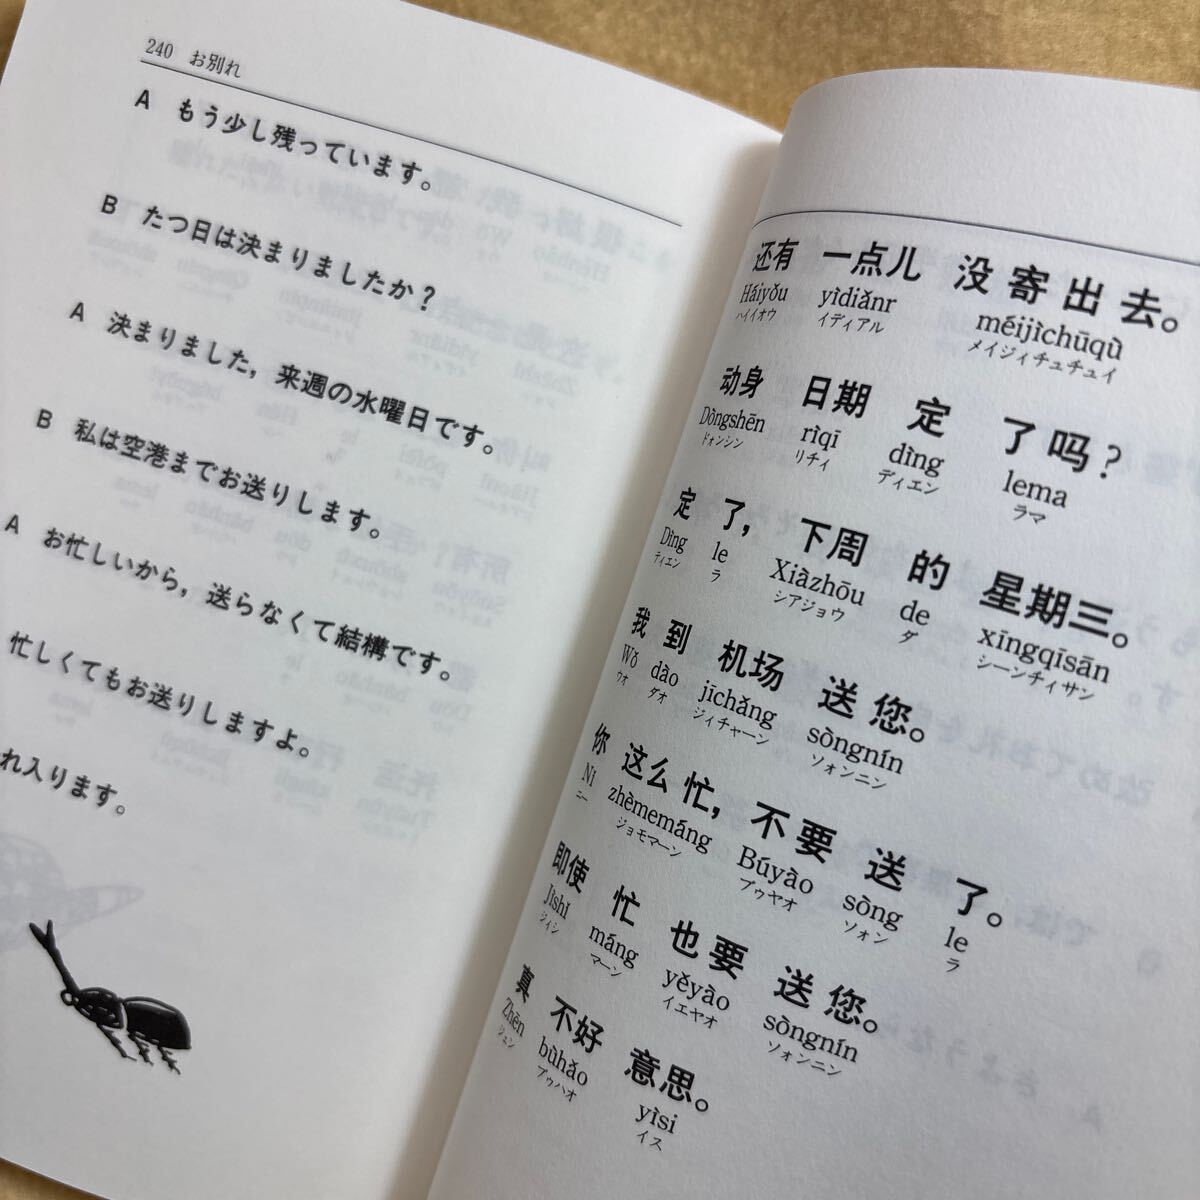 240 お別れ
A もう少し残っています。
B たつ日は決まりましたか？
A 決まりました，来週の水曜日です。
B 私は空港までお送りします。
A お忙しいから，送らなくて結構です。
忙しくてもお送りしますよ。
れ入ります。
还有 一点儿 没寄出去。
Háiyǒu yìdiǎnr méijìchūqù
ハイイオウ イディアル メイジィチュチュイ
动身 日期 定 了吗？
Dòngshēn rìqī dìng lema
ドォンシン リチィ ディエン ラマ
定 了，下周 的 星期三。
Dìng le Xiàzhōu de xīngqīsān
ティエン ラ シアジョウ ダ シーンチィサン
我 到 机场 送您。
Wǒ dào jīchǎng sòngnín
ウオ ダオ ジィチャーン ソォンニン
你 这么忙，不要 送 了。
Nǐ zhèmemáng Búyào sòng le
ニー ジョモマーン ブゥヤオ ソォン ラ
即使 忙 也要 送您。
Jìshǐ máng yěyào sòngnín
ジィシ マーン イエヤオ ソォンニン
真 不好 意思。
Zhēn bùhǎo yìsi
ジェン ブゥハオ イス